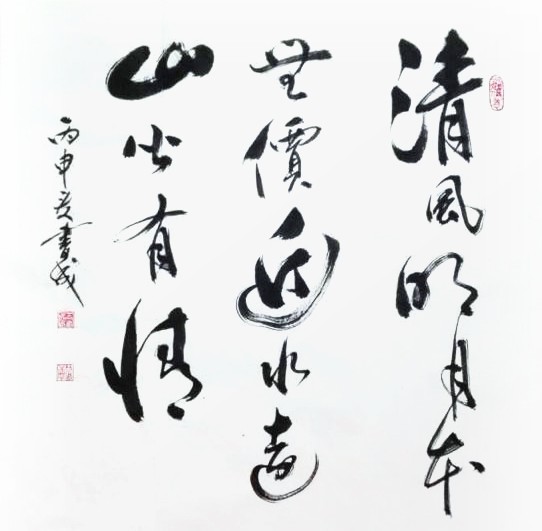 清風明月本
無價近水遠
山皆有情
丙申夏書